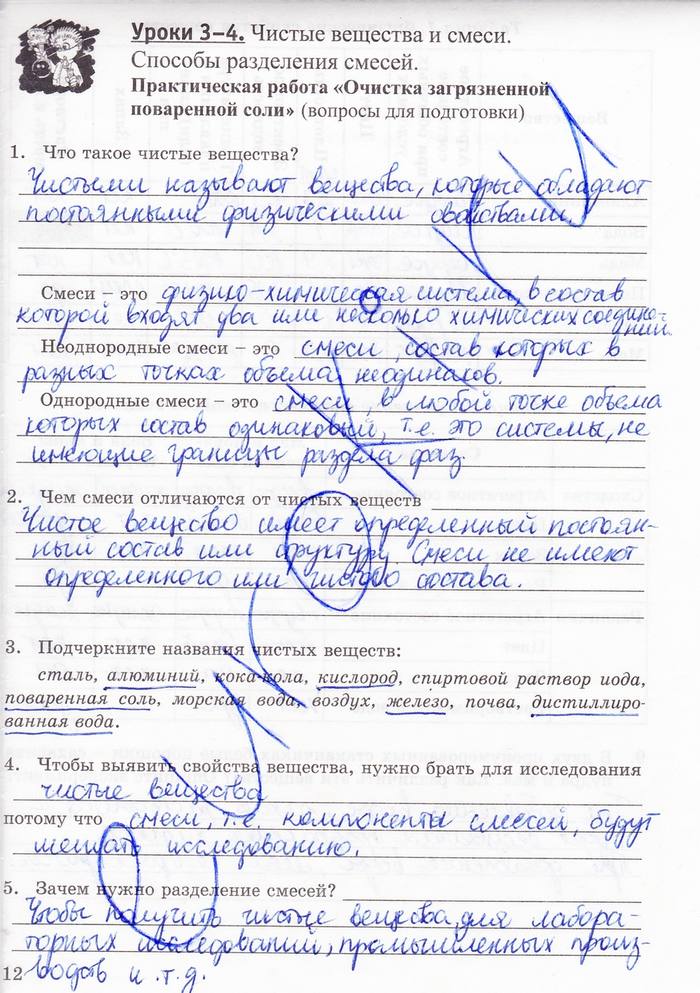 Уроки 3–4. Чистые вещества и смеси.
Способы разделения смесей.
Практическая работа «Очистка загрязненной
поваренной соли» (вопросы для подготовки)
1. Что такое чистые вещества?
Чистыми называют вещества, которые обладают
постоянными физическими свойствами.
Смеси – это физико-химическая система, в состав
которой входят два или несколько химических соедине-
ний.
Неоднородные смеси – это смеси, состав которых в
разных точках объема неодинаков.
Однородные смеси – это смеси, в любой точке объема
которых состав одинаковый, т.е. это системы, не
имеющие границы раздела фаз.
2. Чем смеси отличаются от чистых веществ
Чистое вещество имеет определенный постоян-
ный состав или структуру. Смеси не имеют
определенного или чистого состава.
3. Подчеркните названия чистых веществ:
сталь, алюминий, кока-кола, кислород, спиртовой раствор иода,
поваренная соль, морская вода, воздух, железо, почва, дистиллиро-
ванная вода.
4. Чтобы выявить свойства вещества, нужно брать для исследования
чистые вещества
потому что смеси, т.е. компоненты смесей, будут
мешать исследованию.
5. Зачем нужно разделение смесей?
Чтобы получить чистые вещества для лабора-
торных исследований, промышленных произ-
12 водств и т.д.